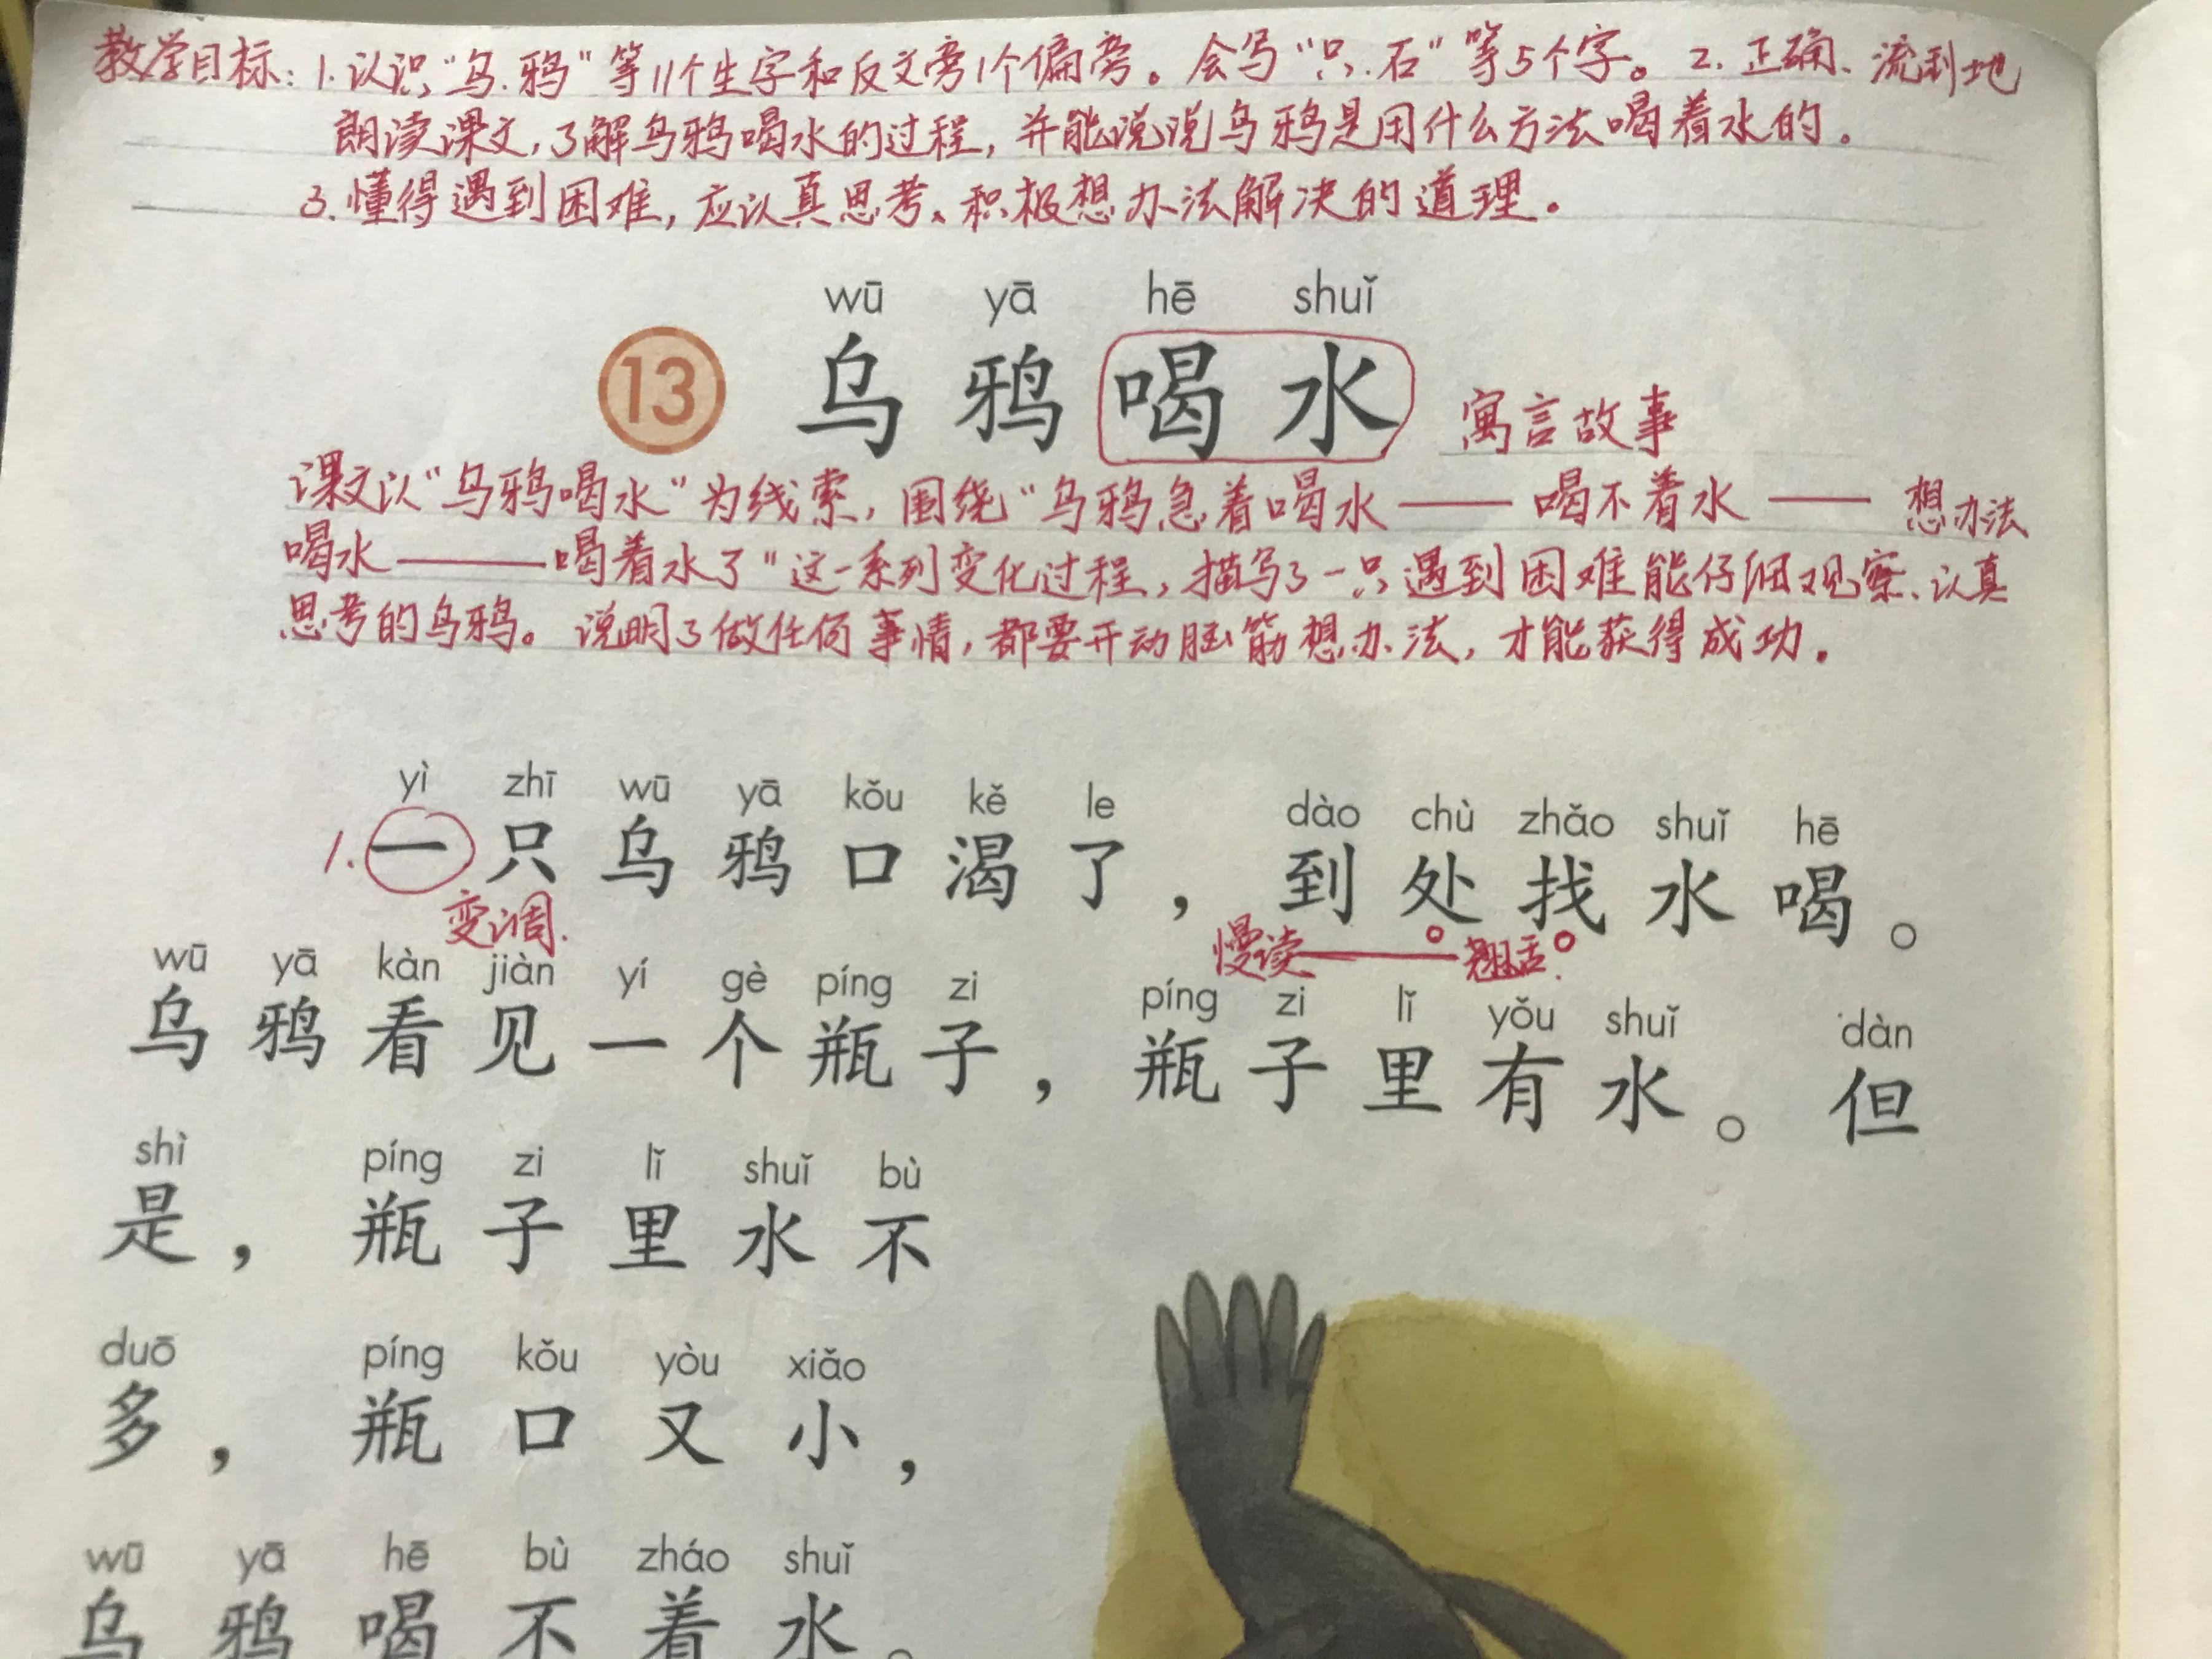 教学目标：1.认识“乌.鸦”等11个生字和反文旁1个偏旁。会写“只.石”等5个字。2.正确、流利地
朗读课文，了解乌鸦喝水的过程，并能说说乌鸦是用什么方法喝着水的。
3.懂得遇到困难，应认真思考、积极想办法解决的道理。
wū yā hē shuǐ
13 乌鸦喝水 寓言故事
课文以“乌鸦喝水”为线索，围绕“乌鸦急着喝水——喝不着水——想办法
喝水——喝着水了”这一系列变化过程，描写了一只遇到困难能仔细观察、认真
思考的乌鸦。说明了做任何事情，都要开动脑筋想办法，才能获得成功。
yì zhī wū yā kǒu kě le dào chù zhǎo shuǐ hē
1.一只乌鸦口渴了，到处找水喝。
变调. 慢读——翘舌.
wū yā kàn jiàn yí gè píng zi píng zi lǐ yǒu shuǐ dàn
乌鸦看见一个瓶子，瓶子里有水。但
shì píng zi lǐ shuǐ bù
是，瓶子里水不
duō píng kǒu yòu xiǎo
多，瓶口又小，
wū yā hē bù zháo shuǐ
乌鸦喝不着水。